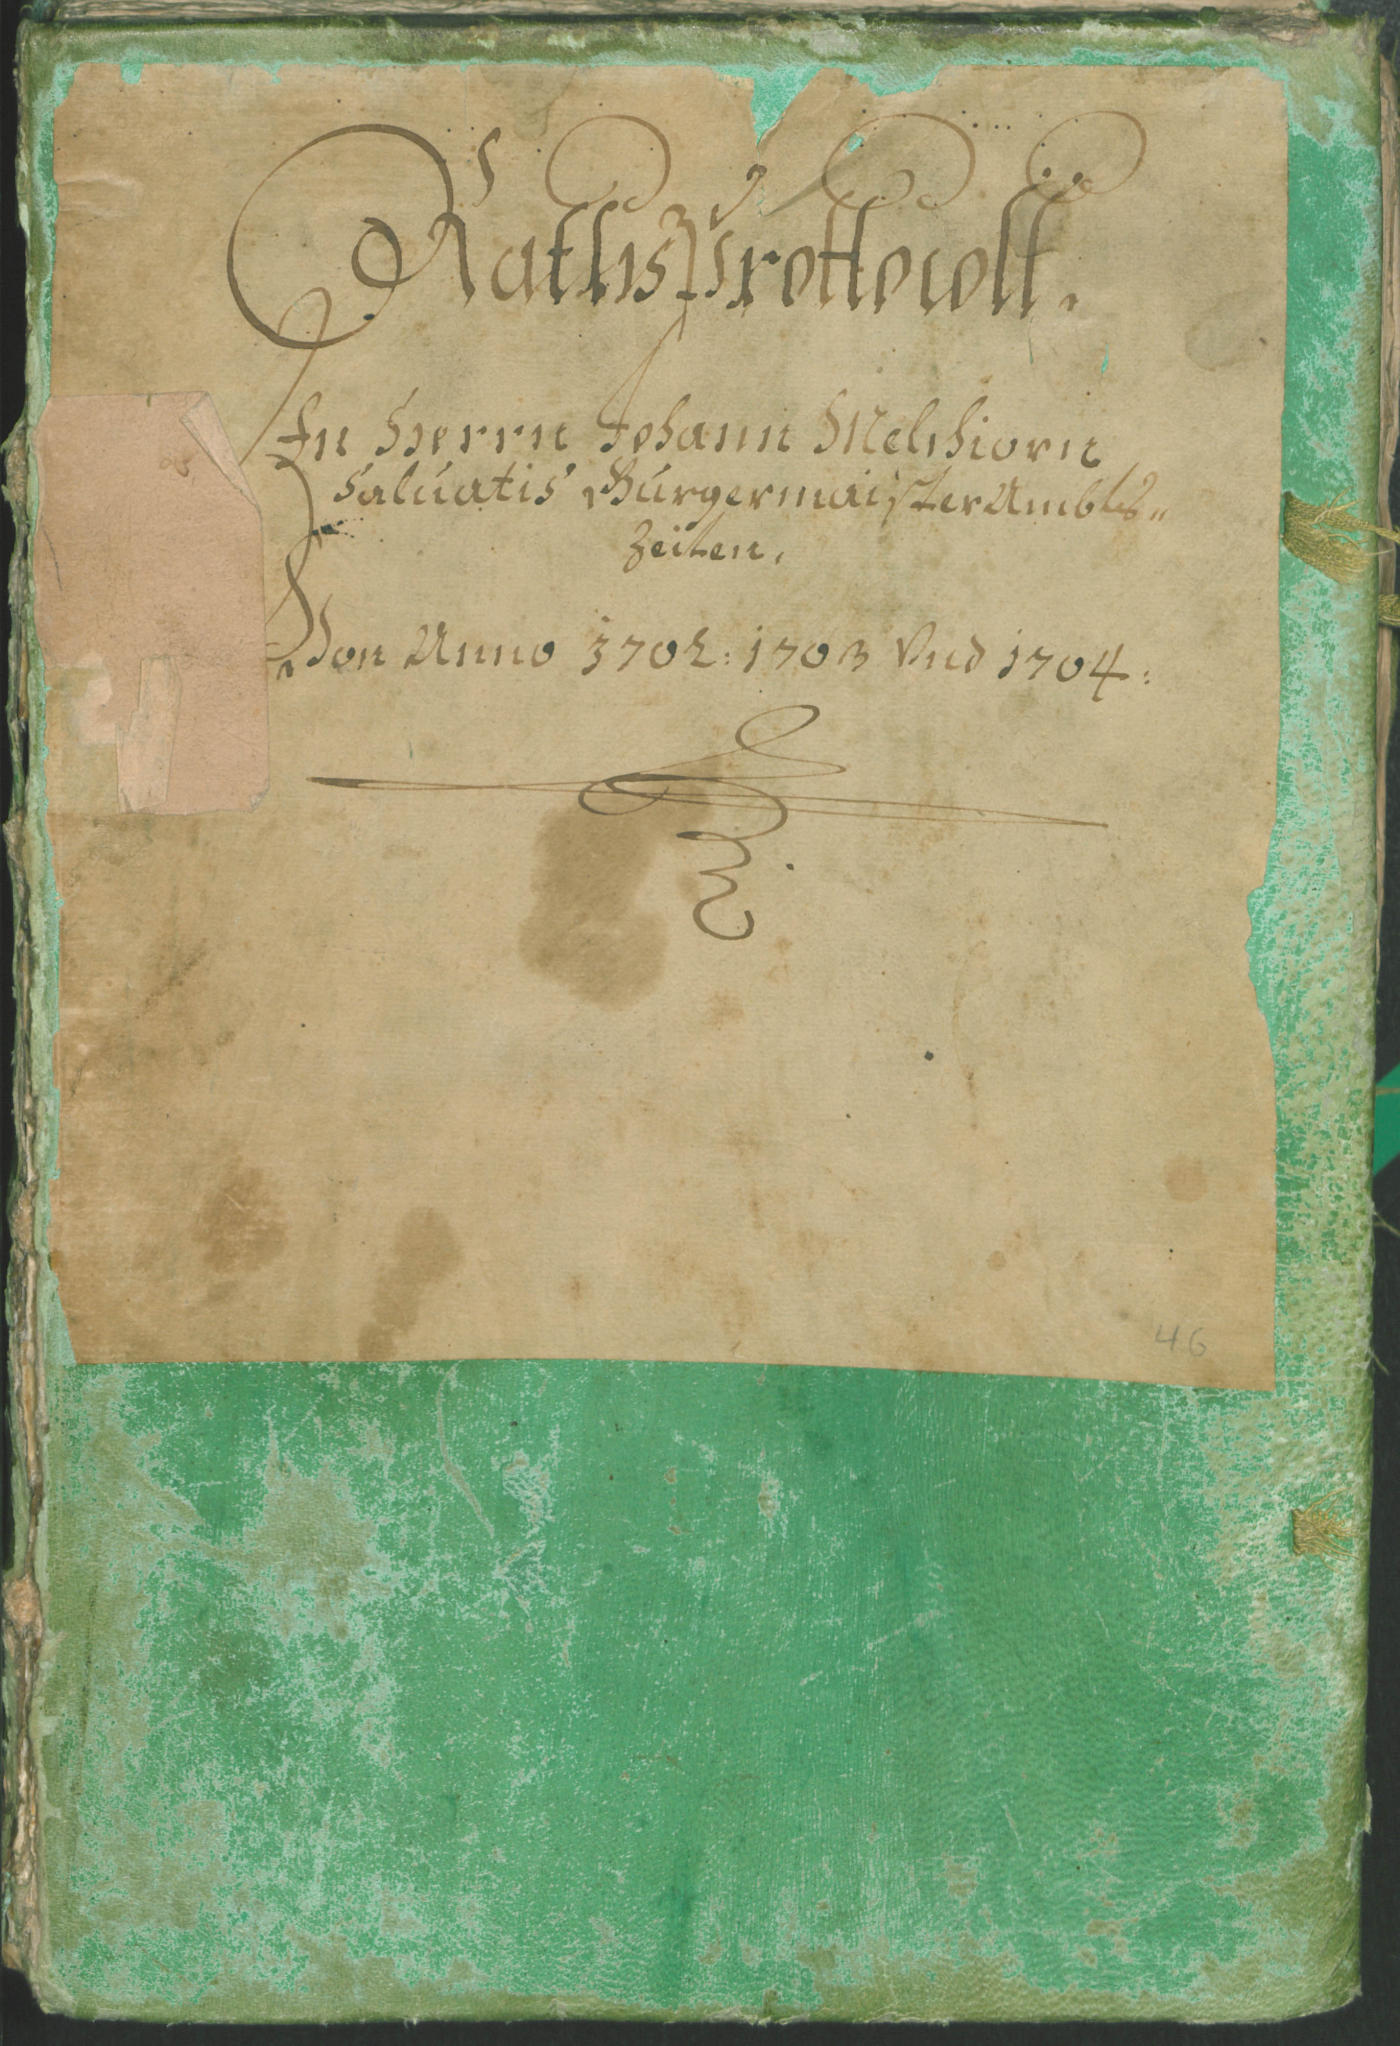 Raths Prottocoll.
In Herrn Johann Melchiorn
Saluatis Burgermaister Ambts-
Zeiten.
Von Anno 1702: 1703 Vnd 1704:
46